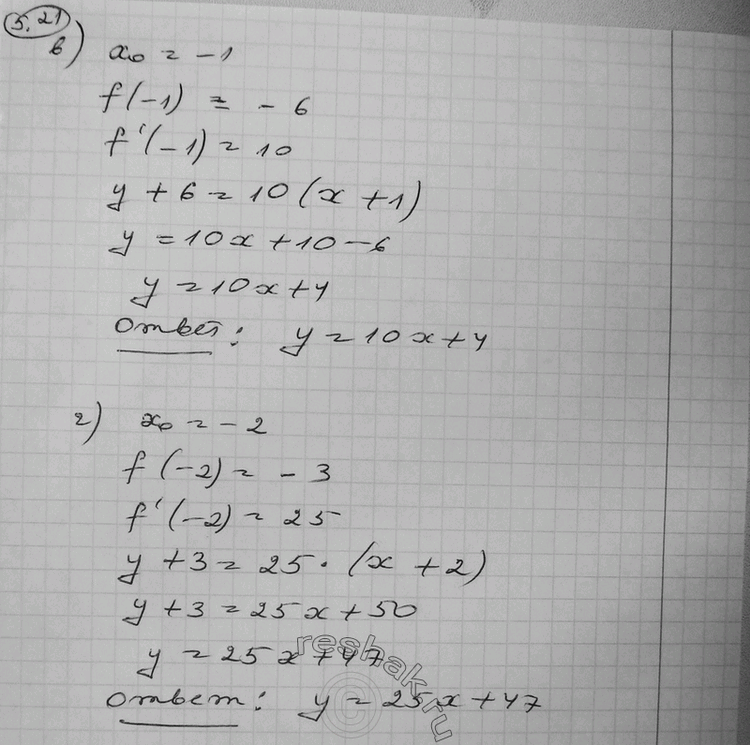 5.21
в) x₀ = -1
f(-1) = -6
f'(-1) = 10
y + 6 = 10(x + 1)
y = 10x + 10 - 6
y = 10x + 4
Ответ: y = 10x + 4
г) x₀ = -2
f(-2) = -3
f'(-2) = 25
y + 3 = 25 · (x + 2)
y + 3 = 25x + 50
y = 25x + 47
Ответ: y = 25x + 47
reshak.ru
©